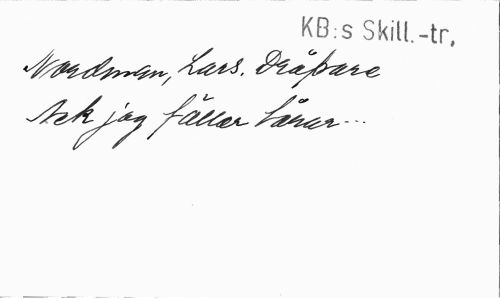 KB:s Skill.-tr.
Nordman, Lars. Dråpare
Ack jag fäller tårar...